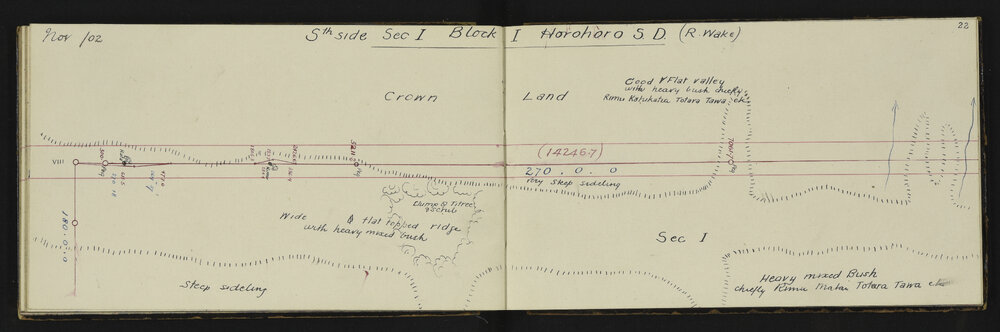 Nov /02
Sth side Sec I Block I Horohoro S.D. (R. Wake)
22
Crown Land
Good & Flat valley
with heavy bush chiefly
Rimu Kahikatia Totara Tawa etc
VIII
(14246.7)
270 . 0 . 0
very steep sideling
180.0.0
Clump of Titree
& Scrub
Wide flat topped ridge
with heavy mixed bush
Sec I
Steep sideling
Heavy mixed Bush
chiefly Rimu Matai Totara Tawa etc